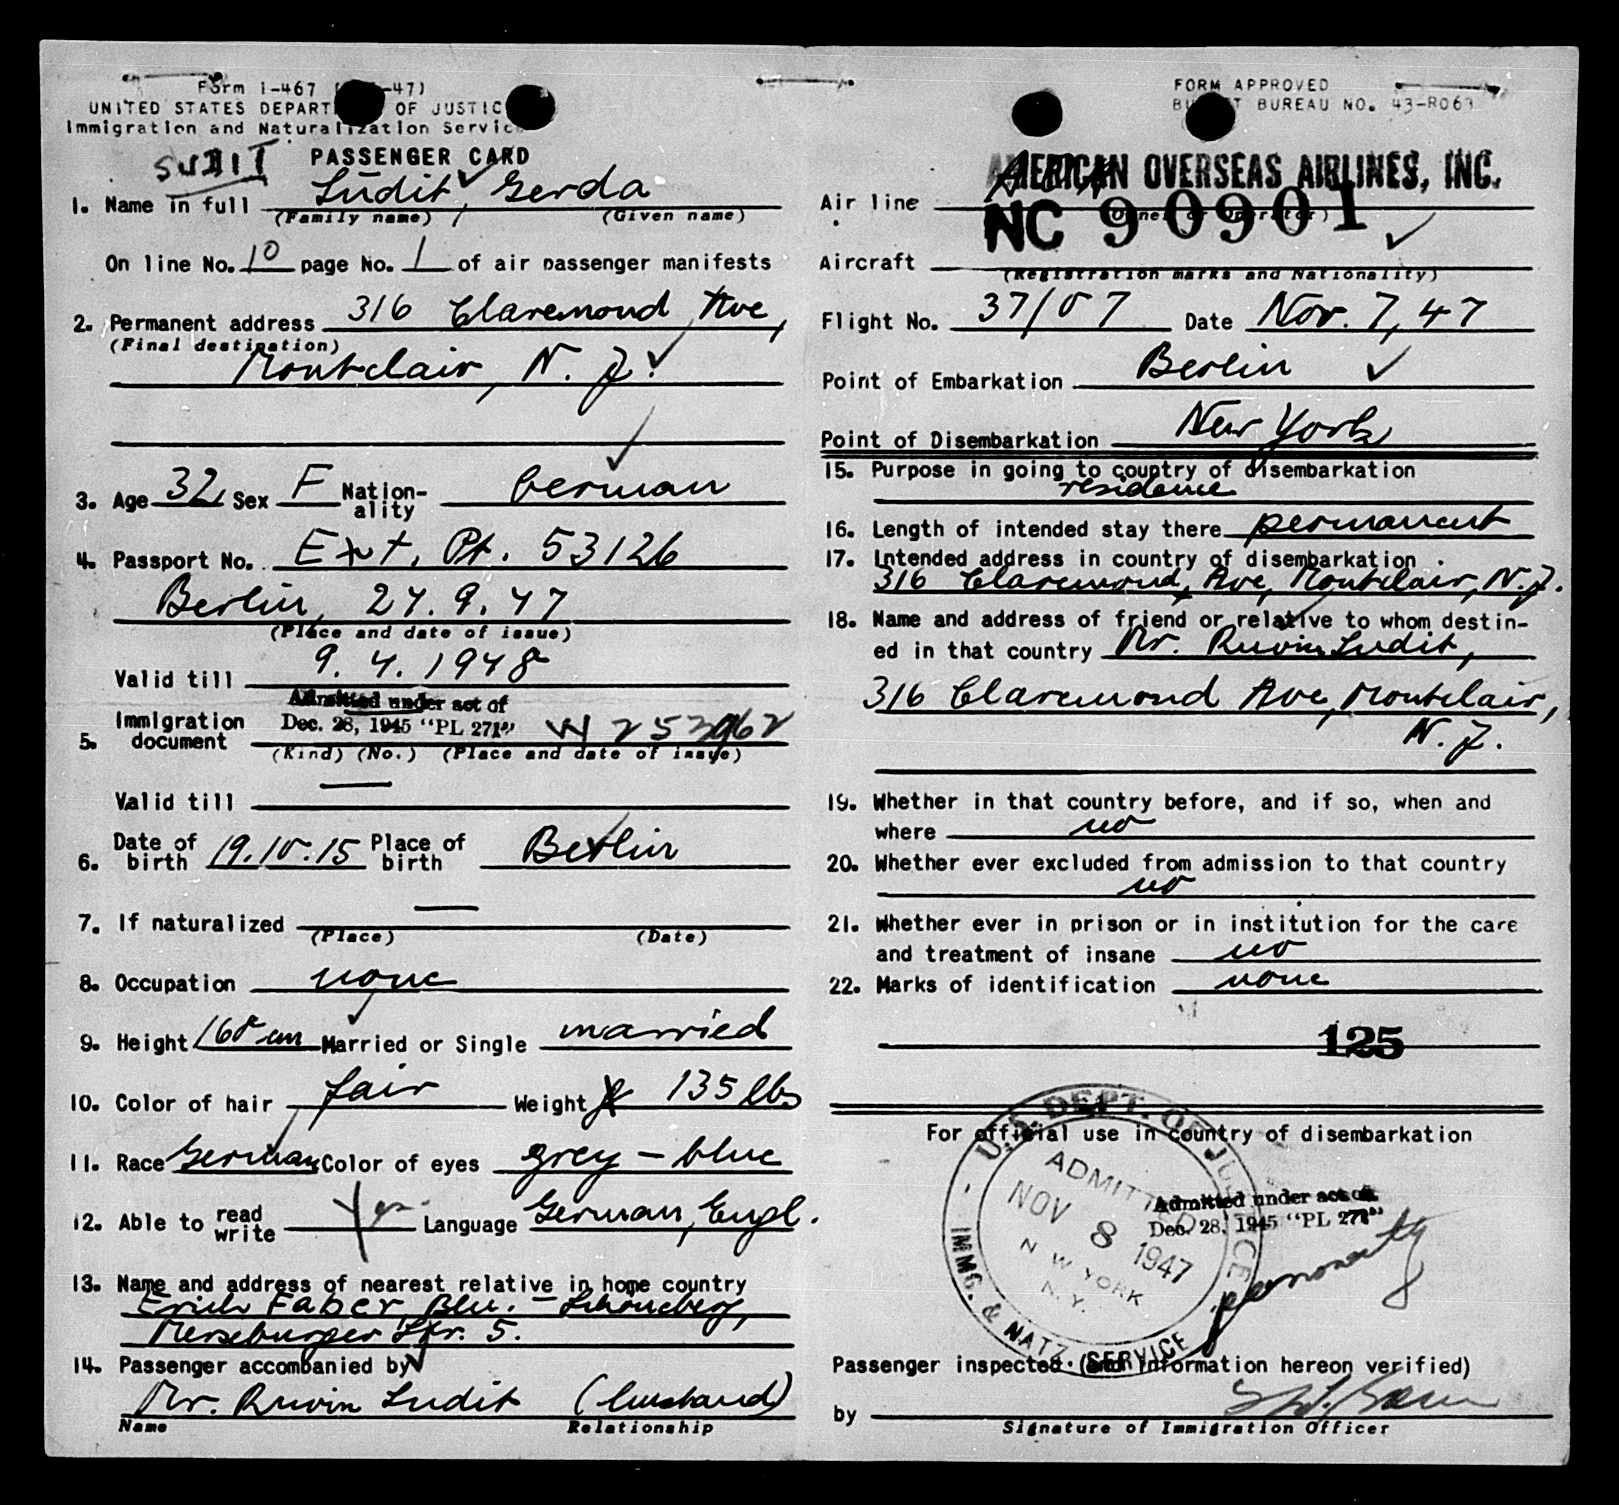 Form I-467 -47)
UNITED STATES DEPART OF JUSTIC
Immigration and Naturalization Servic
PASSENGER CARD
1. Name in full Ludit, Gerda
(Family name) (Given name)
On line No. 10 page No. 1 of air passenger manifests
2. Permanent address 316 Claremond Ave,
(Final destination)
Montclair, N. J.
3. Age 32 Sex F Nation-ality German
4. Passport No. Ext. Pt. 53126
Berlin, 24.9.47
(Place and date of issue)
Valid till 9. 4. 1948
Admitted under act of
Dec. 28, 1945 "PL 271"
5. Immigration document
(Kind) (No.) (Place and date of issue)
Valid till —
6. Date of birth 19.10.15 Place of birth Berlin
7. If naturalized —
(Place) (Date)
8. Occupation none
9. Height 168 cm Married or Single married
10. Color of hair fair Weight 135 lbs
11. Race German Color of eyes grey - blue
12. Able to read write Yes Language German, Engl.
13. Name and address of nearest relative in home country
Erich Faber, Bln. - Schöneberg,
Merseburger Str. 5.
14. Passenger accompanied by
Mr. Ruvin Ludit (husband)
Name Relationship
FORM APPROVED
BU T BUREAU NO. 43-R063
AMERICAN OVERSEAS AIRLINES, INC.
Air line AOA
(Owner or Operator)
NC 90901
Aircraft
(Registration marks and Nationality)
Flight No. 37/07 Date Nov. 7, 47
Point of Embarkation Berlin
Point of Disembarkation New York
15. Purpose in going to country of disembarkation
residence
16. Length of intended stay there permanent
17. Intended address in country of disembarkation
316 Claremond Ave, Montclair, N. J.
18. Name and address of friend or relative to whom destin-
ed in that country Mr. Ruvin Ludit,
316 Claremond Ave, Montclair,
N. J.
19. Whether in that country before, and if so, when and
where no
20. Whether ever excluded from admission to that country
no
21. Whether ever in prison or in institution for the care
and treatment of insane no
22. Marks of identification none
125
For official use in country of disembarkation
U.S. DEPT. OF JUSTICE
ADMITTED
NOV 8 1947
N W YORK
N. Y.
IMMG. & NATZ. SERVICE
Admitted under act of
Dec. 28, 1945 "PL 271"
permanently
Passenger inspected (and information hereon verified)
by
Signature of Immigration Officer